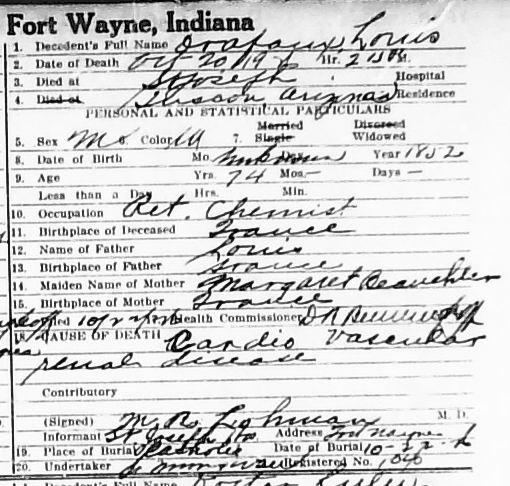 Fort Wayne, Indiana
1. Decedent's Full Name Drapaux, Louis
2. Date of Death Oct-20, 19 Hr. 2 M.
3. Died at St Joseph Hospital
4. Died at Residence
PERSONAL AND STATISTICAL PARTICULARS
Married Divorced
5. Sex M 6. Color W 7. Single Widowed
8. Date of Birth Mo. Unknown Day Year 1852
9. Age Yrs. 74 Mos. — Days —
Less than a Day Hrs. Min.
10. Occupation Ret. Chemist
11. Birthplace of Deceased France
12. Name of Father Louis
13. Birthplace of Father France
14. Maiden Name of Mother Margaret
15. Birthplace of Mother France
Health Commissioner
18. CAUSE OF DEATH Cardio Vascular
renal disease
Contributory
(Signed) M. R. Lohman M. D.
Informant St Joseph Address Fort Wayne
19. Place of Burial Catholic Date of Burial 10-22-
20. Undertaker Registered No. 1040
Decedent's Full Name